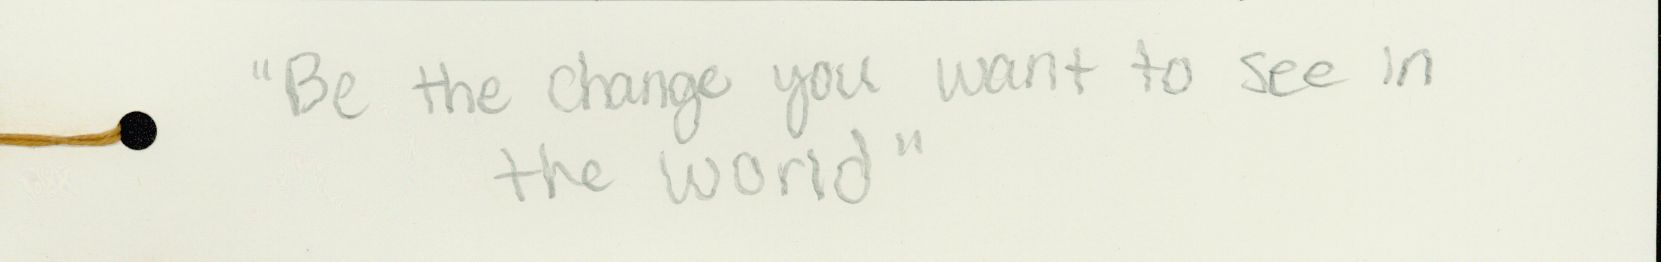 "Be the change you want to see in
the world"